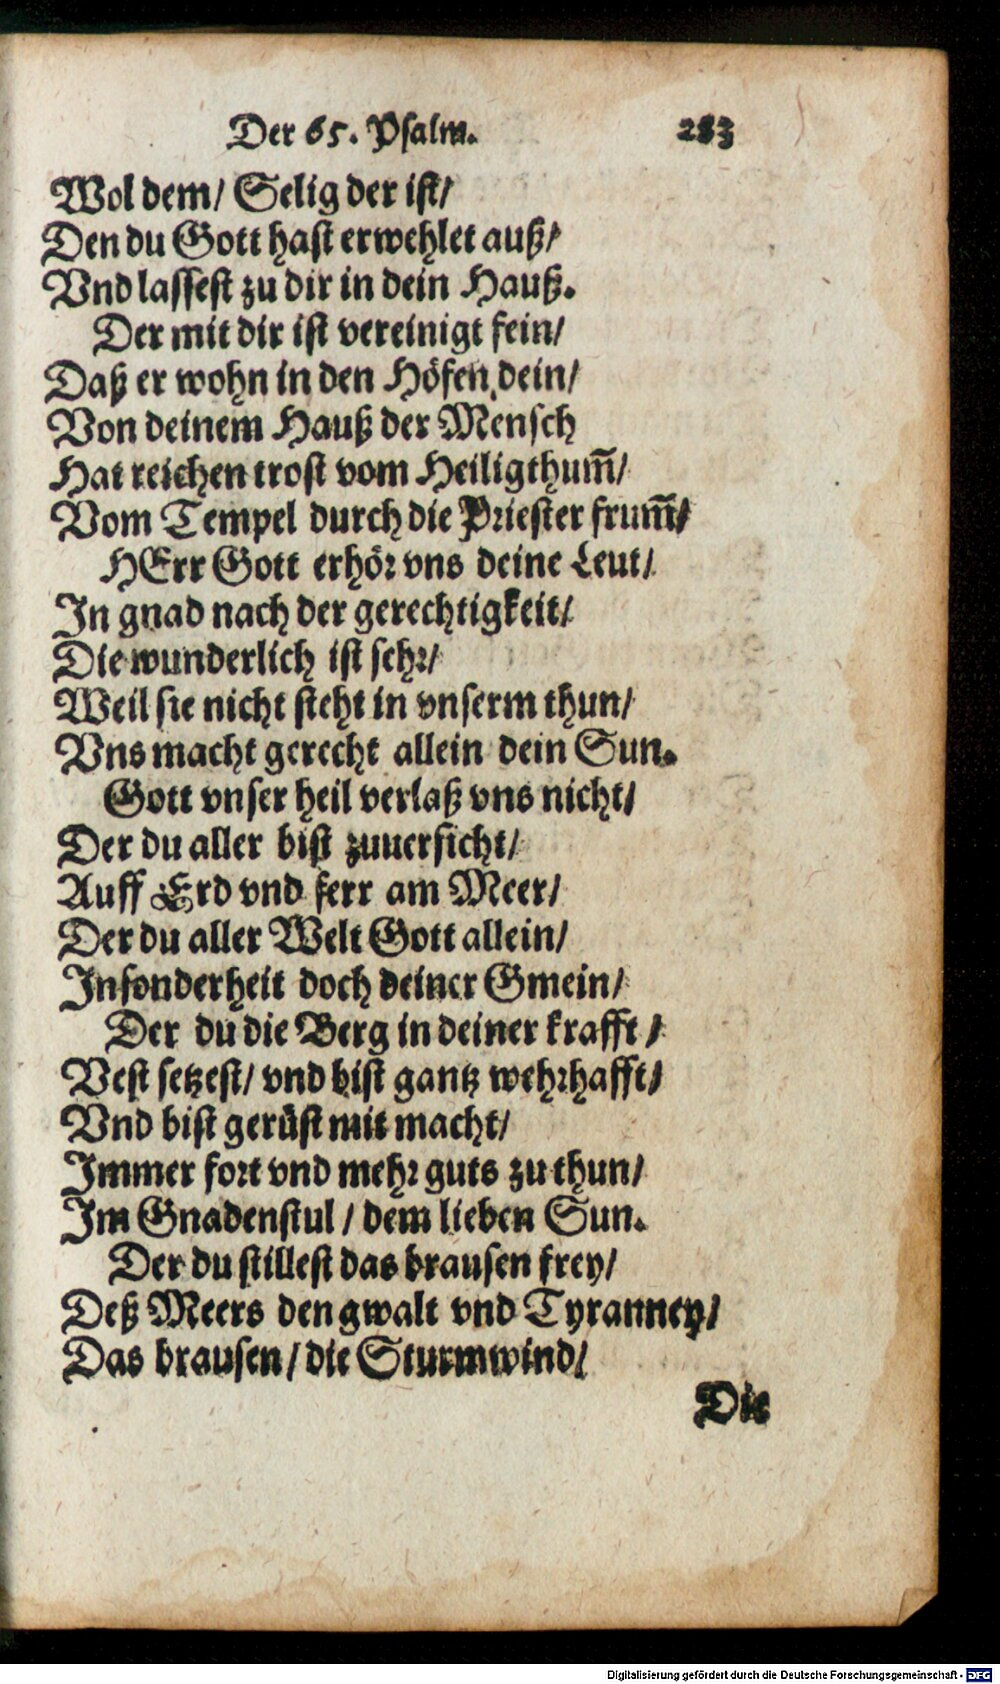 Der 65. Psalm. 283
Wol dem/ Selig der ist/
Den du Gott hast erwehlet auß/
Vnd lassest zu dir in dein Hauß.
Der mit dir ist vereinigt fein/
Daß er wohn in den Höfen dein/
Von deinem Hauß der Mensch
Hat reichen trost vom Heiligthum̃/
Vom Tempel durch die Priester frum̃/
HErr Gott erhör vns deine Leut/
In gnad nach der gerechtigkeit/
Die wunderlich ist sehr/
Weil sie nicht steht in vnserm thun/
Vns macht gerecht allein dein Sun.
Gott vnser heil verlaß vns nicht/
Der du aller bist zuuersicht/
Auff Erd vnd ferr am Meer/
Der du aller Welt Gott allein/
Insonderheit doch deiner Gmein/
Der du die Berg in deiner krafft/
Vest setzest/ vnd bist gantz wehrhafft/
Vnd bist gerüst mit macht/
Immer fort vnd mehr guts zu thun/
Im Gnadenstul/ dem lieben Sun.
Der du stillest das brausen frey/
Deß Meers den gwalt vnd Tyranney/
Das brausen/ die Sturmwind/
Die
Digitalisierung gefördert durch die Deutsche Forschungsgemeinschaft - DFG